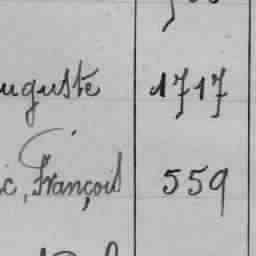 uguste 1717
c, François 559